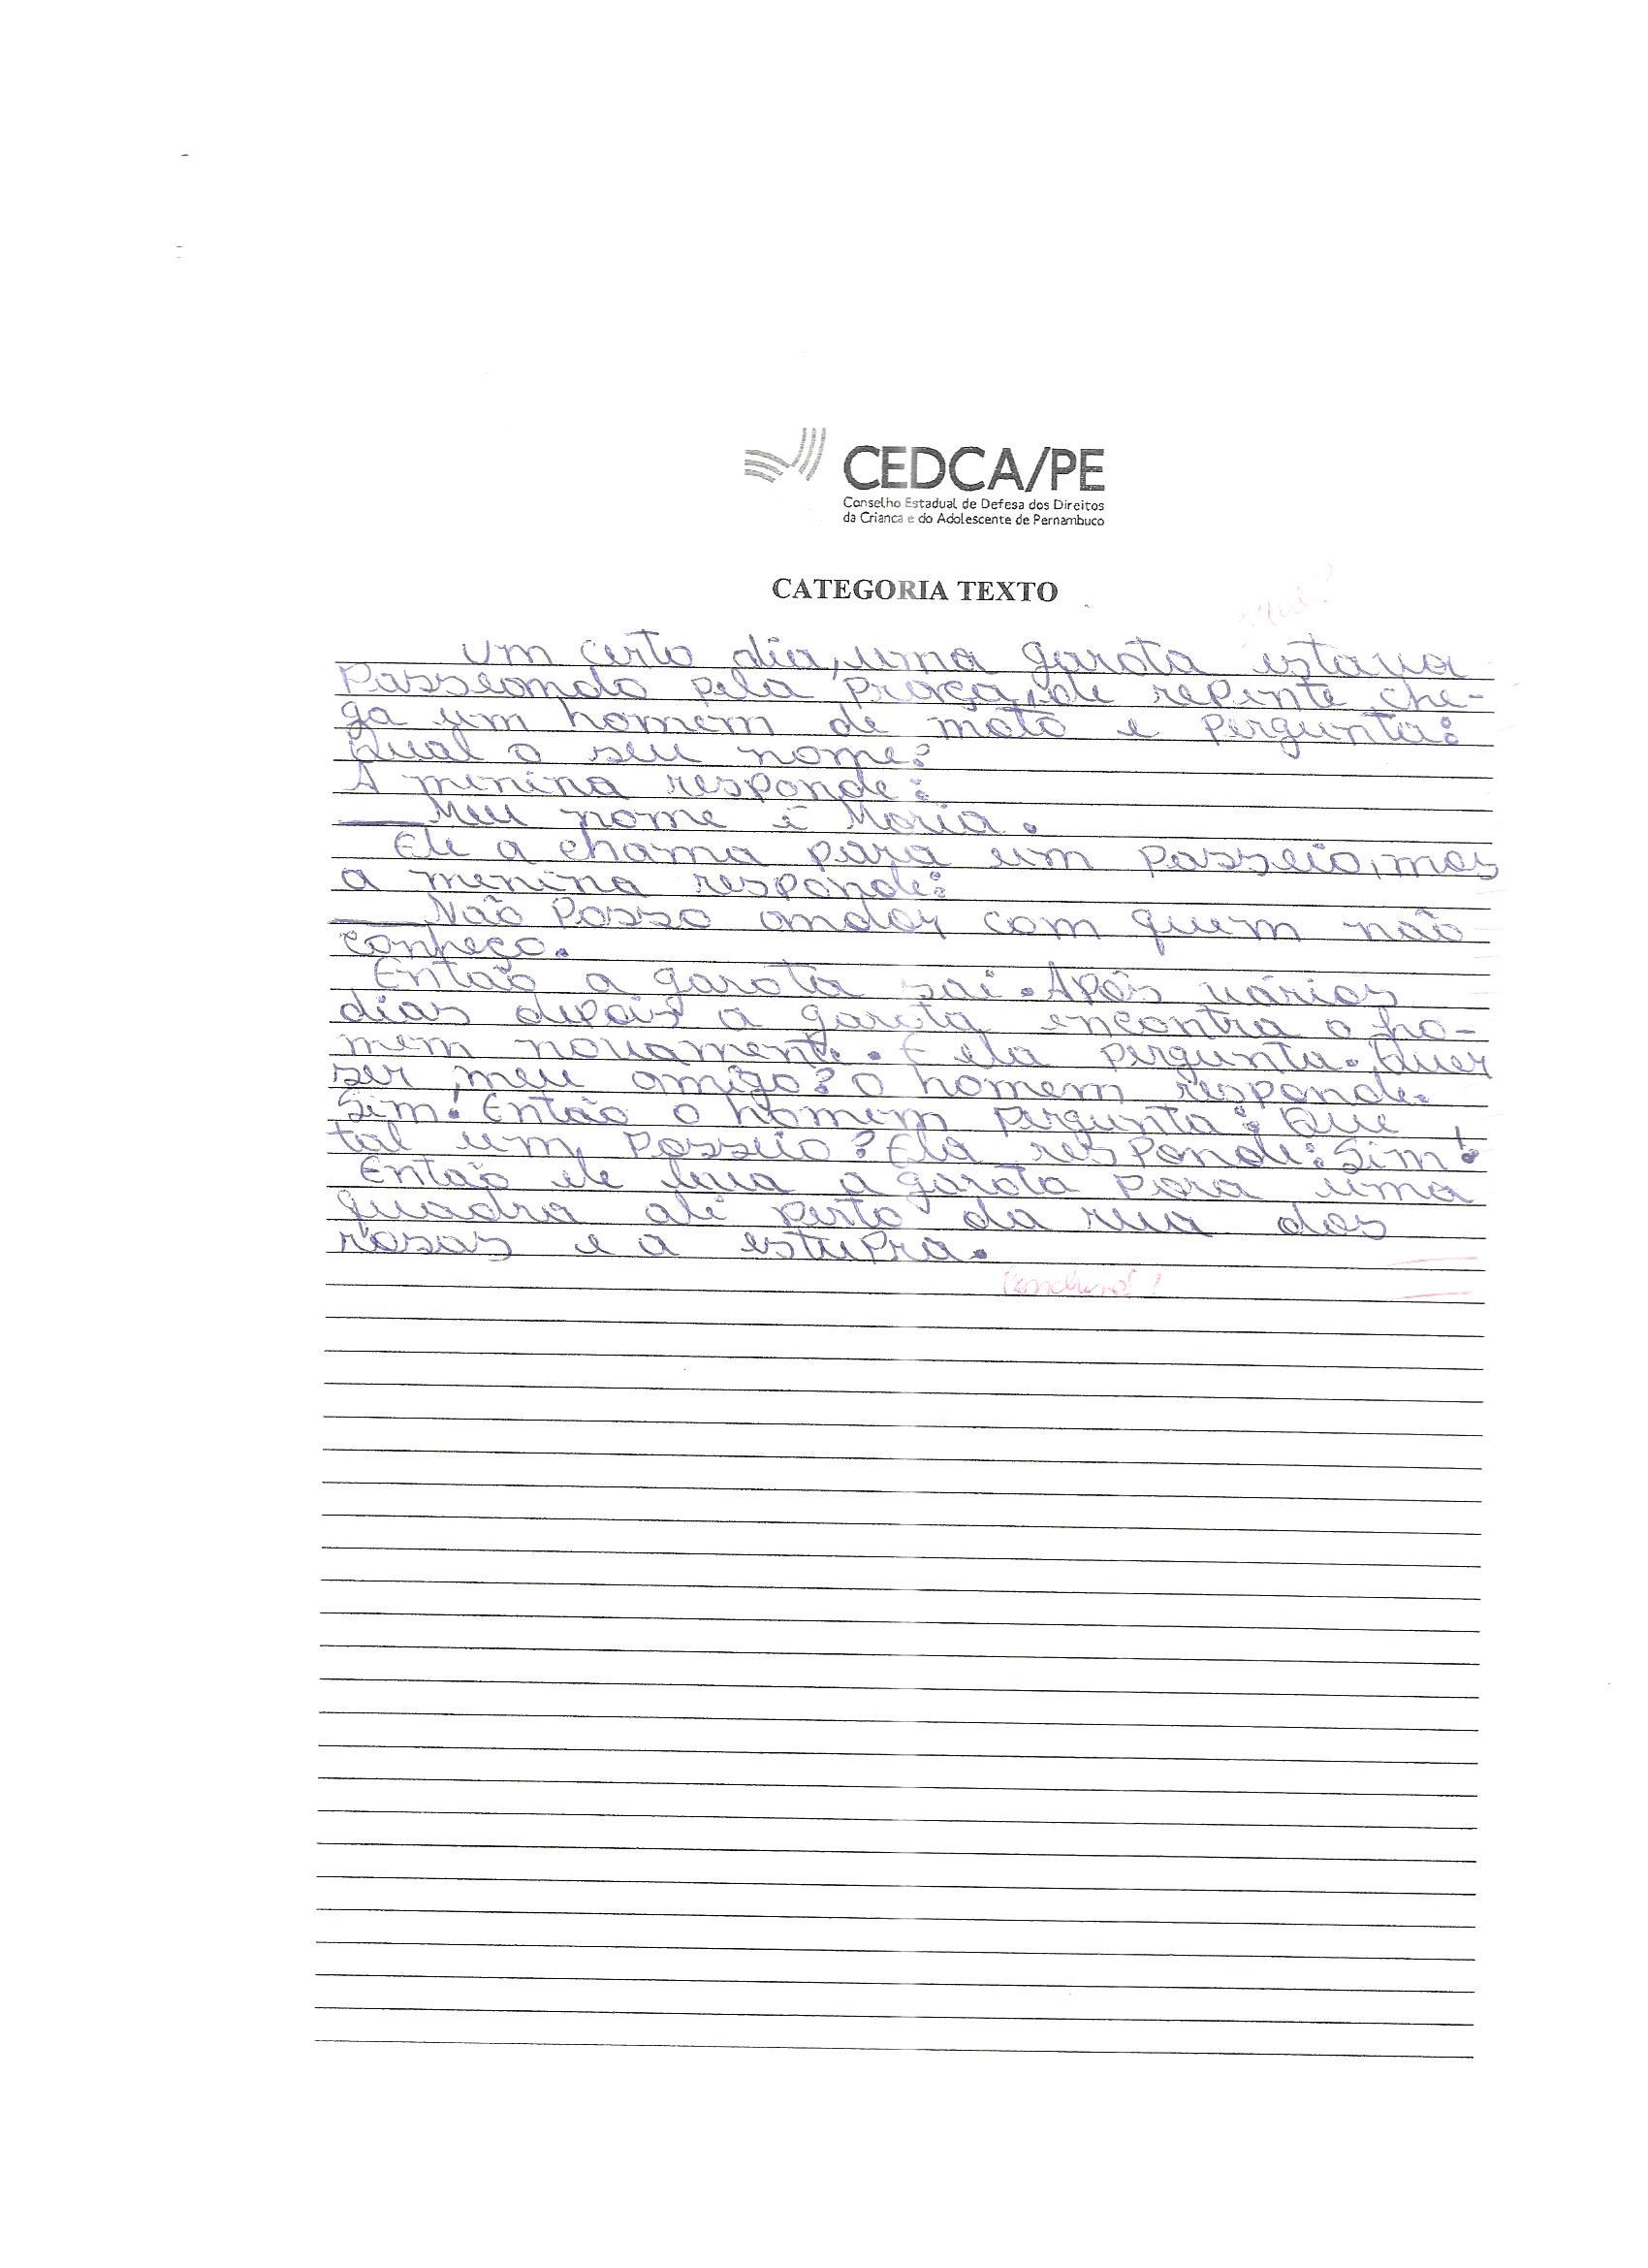 CEDCA/PE
Conselho Estadual de Defesa dos Direitos
da Criança e do Adolescente de Pernambuco
CATEGORIA TEXTO
Um certo dia, uma garota estava
Passeando pela praça, de repente che-
ga um homem de moto e pergunta:
Qual o seu nome?
A menina responde:
— Meu nome é Maria.
Ele a chama para um passeio, mas
a menina responde:
— Não Posso andar com quem não
conheço.
Então a garota sai. Após vários
dias depois a garota encontra o ho-
mem novamente. E ela pergunta. Quer
ser meu amigo? O homem responde.
Sim! Então o homem pergunta: Que
tal um Passeio? Ela responde: Sim!
Então ele leva a garota para uma
quadra ali perto da rua das
rosas e a estupra.